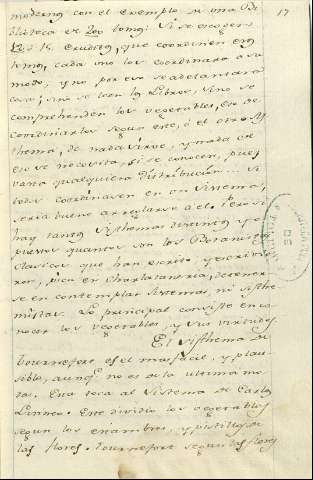 moderno con el exemplo de una Bi-
blioteca de 200 tomos: Si se escogen
12, ó 15 eruditos, que coordinen esos
tomos, cada uno los coordinara a su
modo, y no por eso se adelantara
cosa; sino se leen los Libros, sino se
comprehenden los vegetables, eso de
coordinarlos segun este, ó el otro Sys-
thema, de nada sirve, y nada de
eso se necesita, si se conocen, pues
vano qualquiera distribucion... Si
todos coordinasen en un Sistema,
seria bueno arreglarse a el. Pero si
hay tantos Sisthemas distintos, y di-
versos quantos son los Botanicos
Clasicos que han escrito, y escrivie-
ron, pica en charlataneria, detener-
se en contemplar sistemas, ni sisthe-
misticas. Lo principal consiste en co-
nocer los vegetables, y sus virtudes.
El Sisthema de
Tournefort es el mas facil, y plau-
sible, aunq.e no es de la ultima mo-
da. Esta toca al Sistema de Carlos
Linneo. Este dividio los vegetables
segun los enambres, y pistilos de
las flores. Tournefort segun las flores
17
DE